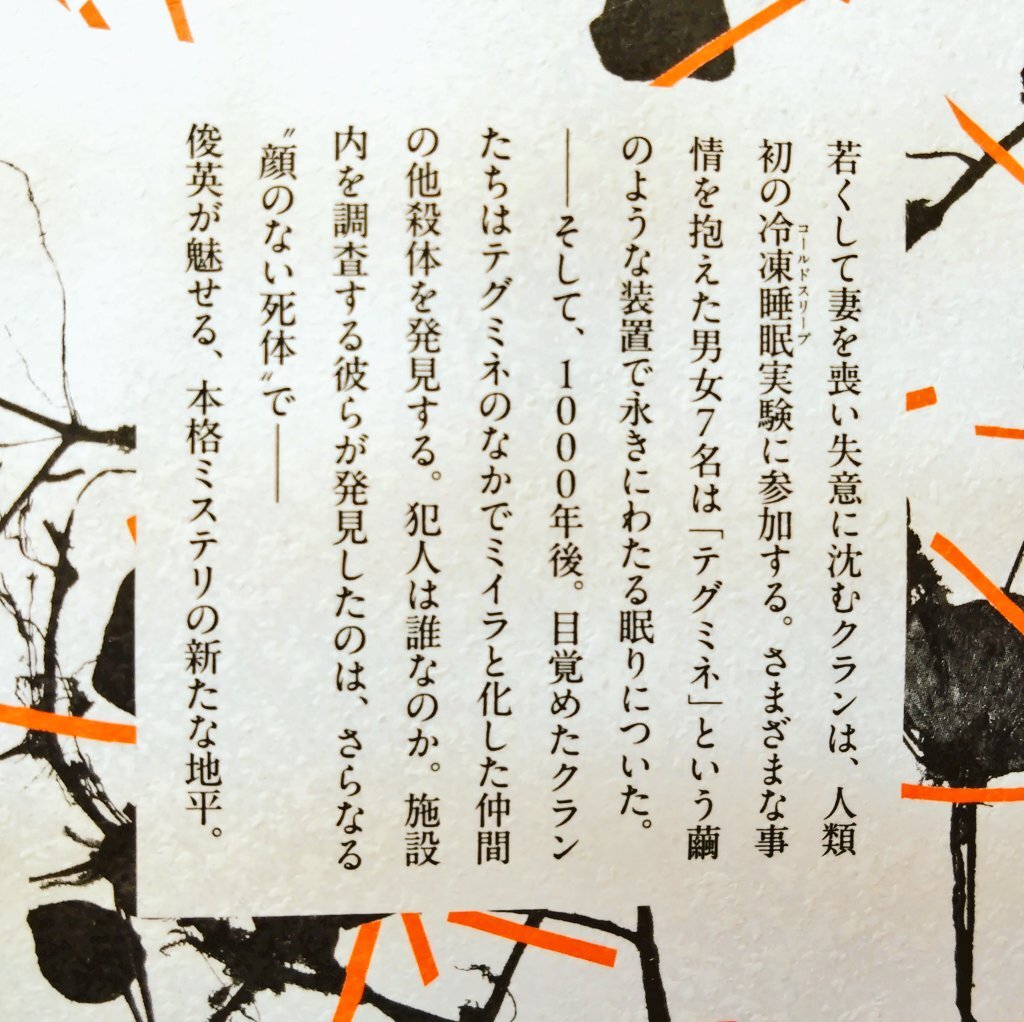 若くして妻を喪い失意に沈むクランは、人類
初の冷凍睡眠実験に参加する。さまざまな事
コールドスリープ
情を抱えた男女7名は「テグミネ」という繭
のような装置で永きにわたる眠りについた。
――そして、1000年後。目覚めたクラン
たちはテグミネのなかでミイラと化した仲間
の他殺体を発見する。犯人は誰なのか。施設
内を調査する彼らが発見したのは、さらなる
〝顔のない死体〟で――
俊英が魅せる、本格ミステリの新たな地平。